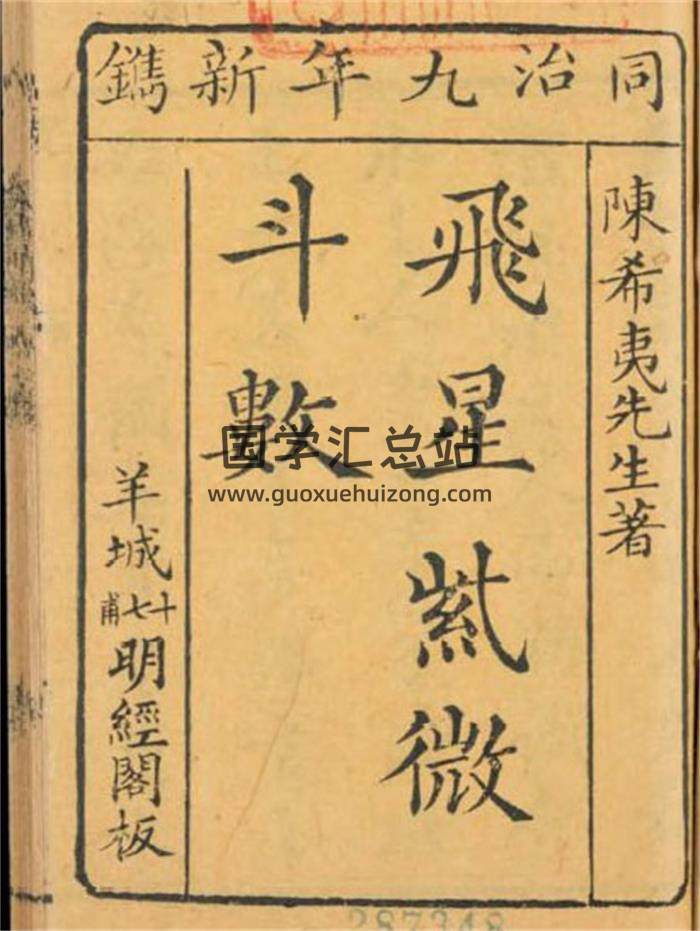 同治九年新鐫
陳希夷先生著
飛星紫微
斗數
羊城
十七甫
明經閣板
国学汇总站
www.guoxuehuizong.com
287348